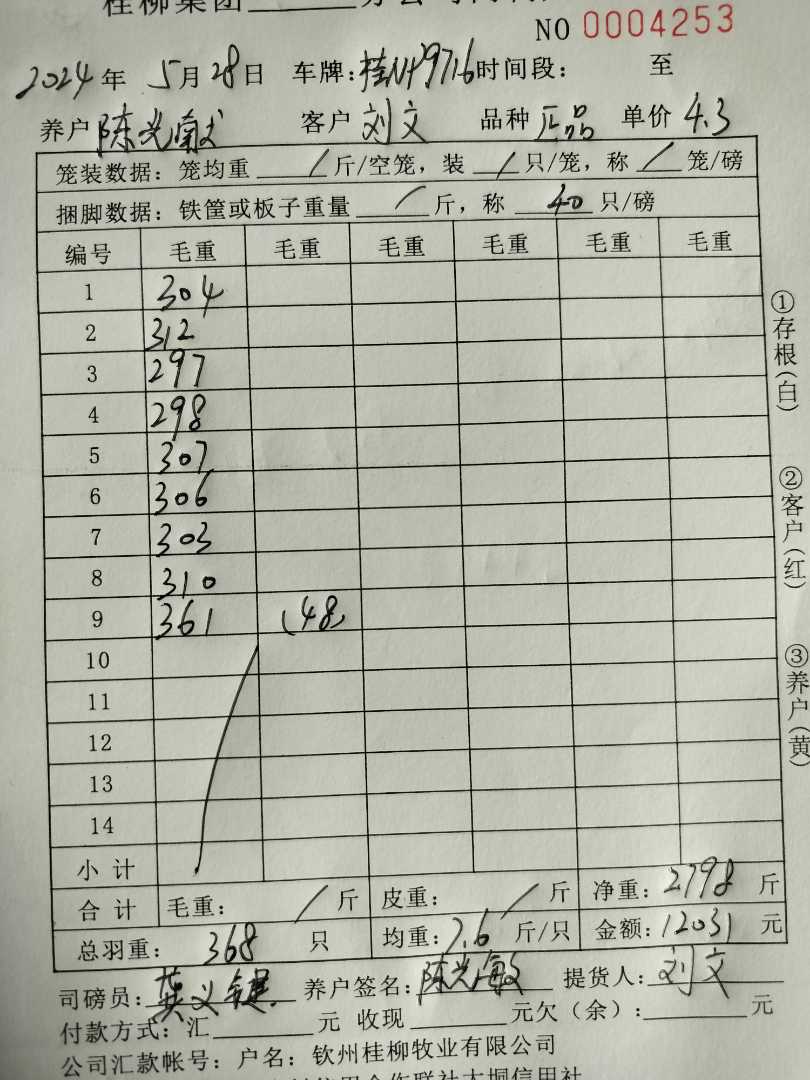 桂柳集团
NO 0004253
2024年 5月28日 车牌:桂N49716 时间段: 至
养户 陈光敏 客户 刘文 品种 正品 单价 4.3
笼装数据: 笼均重 / 斤/空笼, 装 / 只/笼, 称 / 笼/磅
捆脚数据: 铁筐或板子重量 / 斤, 称 40 只/磅
编号 毛重 毛重 毛重 毛重 毛重 毛重
1 304
2 312
3 297
4 298
5 307
6 306
7 303
8 310
9 361 (48)
10
11
12
13
14
小计
合计 毛重: / 斤 皮重: / 斤 净重: 2798 斤
总羽重: 368 只 均重: 7.6 斤/只 金额: 12031 元
司磅员: 义键 养户签名: 陈光敏 提货人: 刘文
付款方式: 汇 元 收现 元欠(余): 元
公司汇款帐号: 户名: 钦州桂柳牧业有限公司
信用合作联社大垌信用社
①存根(白)
②客户(红)
③养户(黄)